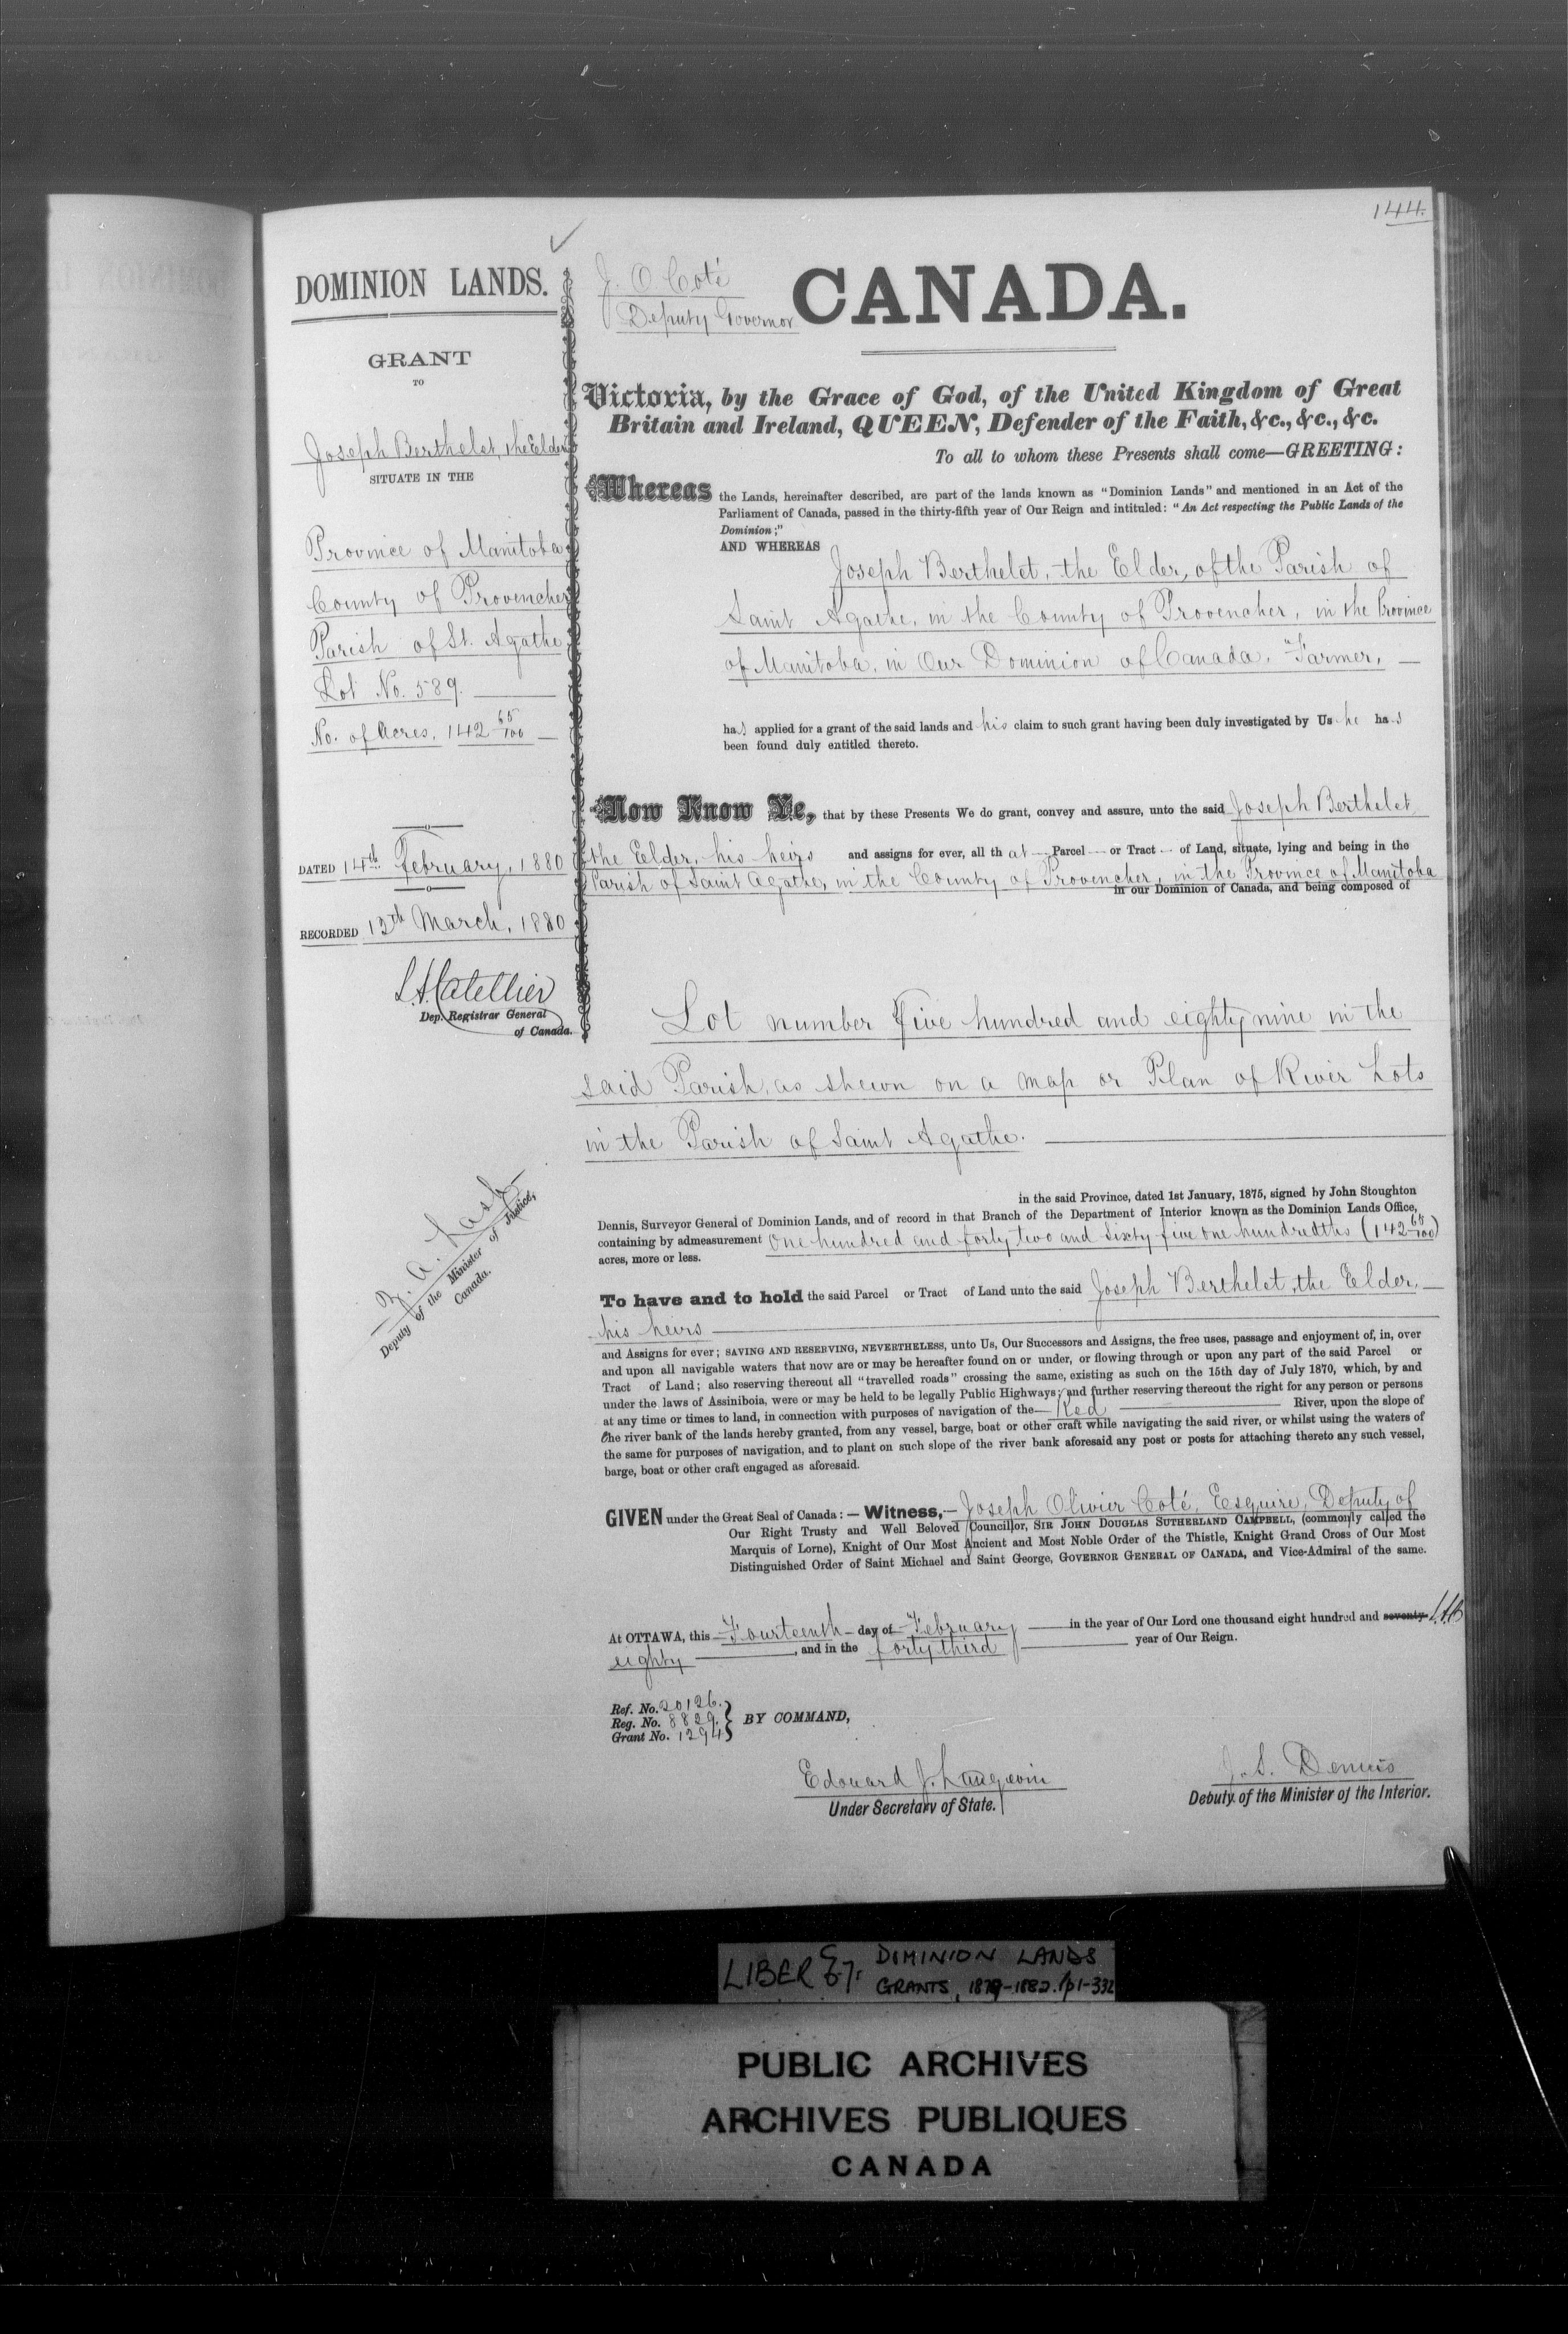 144.
DOMINION LANDS.
GRANT
TO
Joseph Berthelet, the Elder
SITUATE IN THE
Province of Manitoba
County of Provencher
Parish of St. Agathe
Lot No. 589.
No. of Acres, 142 65/100
DATED 14th February, 1880
RECORDED 13th March, 1880
L.A. Catellier
Dep. Registrar General
of Canada.
Z. A. Lash
Deputy of the Minister of Justice,
Canada.
J. O Coté
Deputy Governor
CANADA.
Victoria, by the Grace of God, of the United Kingdom of Great
Britain and Ireland, QUEEN, Defender of the Faith, &c., &c., &c.
To all to whom these Presents shall come—GREETING:
Whereas the Lands, hereinafter described, are part of the lands known as "Dominion Lands" and mentioned in an Act of the
Parliament of Canada, passed in the thirty-fifth year of Our Reign and intituled: "An Act respecting the Public Lands of the
Dominion;"
AND WHEREAS
Joseph Berthelet, the Elder, of the Parish of
Saint Agathe, in the County of Provencher, in the Province
of Manitoba, in Our Dominion of Canada, Farmer, —
has applied for a grant of the said lands and his claim to such grant having been duly investigated by Us he has
been found duly entitled thereto.
Now Know Ye, that by these Presents We do grant, convey and assure, unto the said Joseph Berthelet
the Elder, his heirs and assigns for ever, all that Parcel or Tract of Land, situate, lying and being in the
Parish of Saint Agathe, in the County of Provencher, in the Province of Manitoba
in our Dominion of Canada, and being composed of
Lot number Five hundred and eighty nine in the
said Parish, as shewn on a map or Plan of River Lots
in the Parish of Saint Agathe.
in the said Province, dated 1st January, 1875, signed by John Stoughton
Dennis, Surveyor General of Dominion Lands, and of record in that Branch of the Department of Interior known as the Dominion Lands Office,
containing by admeasurement One hundred and forty two and sixty five one hundredths (142 65/100)
acres, more or less.
To have and to hold the said Parcel or Tract of Land unto the said Joseph Berthelet, the Elder, —
his heirs
and Assigns for ever; SAVING AND RESERVING, NEVERTHELESS, unto Us, Our Successors and Assigns, the free uses, passage and enjoyment of, in, over
and upon all navigable waters that now are or may be hereafter found on or under, or flowing through or upon any part of the said Parcel or
Tract of Land; also reserving thereout all "travelled roads" crossing the same, existing as such on the 15th day of July 1870, which, by and
under the laws of Assiniboia, were or may be held to be legally Public Highways; and further reserving thereout the right for any person or persons
at any time or times to land, in connection with purposes of navigation of the Red River, upon the slope of
the river bank of the lands hereby granted, from any vessel, barge, boat or other craft while navigating the said river, or whilst using the waters of
the same for purposes of navigation, and to plant on such slope of the river bank aforesaid any post or posts for attaching thereto any such vessel,
barge, boat or other craft engaged as aforesaid.
GIVEN under the Great Seal of Canada:—Witness,—Joseph Olivier Coté, Esquire, Deputy of
Our Right Trusty and Well Beloved Councillor, SIR JOHN DOUGLAS SUTHERLAND CAMPBELL, (commonly called the
Marquis of Lorne), Knight of Our Most Ancient and Most Noble Order of the Thistle, Knight Grand Cross of Our Most
Distinguished Order of Saint Michael and Saint George, GOVERNOR GENERAL OF CANADA, and Vice-Admiral of the same.
At OTTAWA, this Fourteenth day of February in the year of Our Lord one thousand eight hundred and seventy
eighty, and in the forty third year of Our Reign.
Ref. No. 20126.
Reg. No. 8829.
Grant No. 1294
BY COMMAND,
Edouard J. Langevin
Under Secretary of State.
J. S. Dennis
Deputy of the Minister of the Interior.
LIBER
DOMINION LANDS
GRANTS, 1879-1882. /p1-332
PUBLIC ARCHIVES
ARCHIVES PUBLIQUES
CANADA